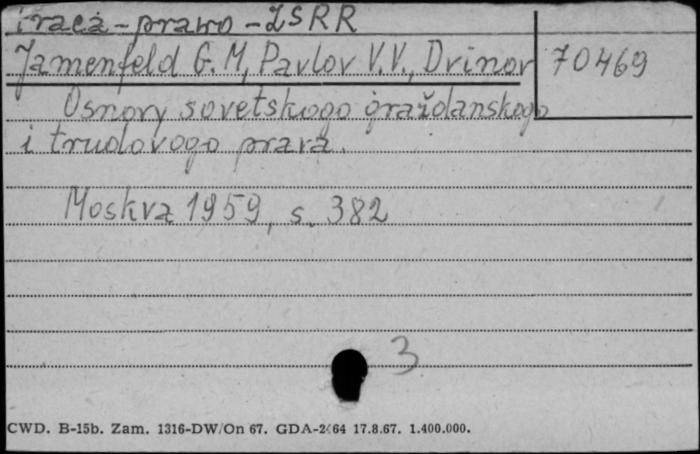 praca - prawo - ZSRR
Jamenfeld G.M, Pavlov V.V., Drinov
70469
Osnovy sovetskogo graždanskogo
i trudovogo prava.
Moskva 1959, s. 382
3
CWD. B-15b. Zam. 1316-DW/On 67. GDA-2464 17.8.67. 1.400.000.